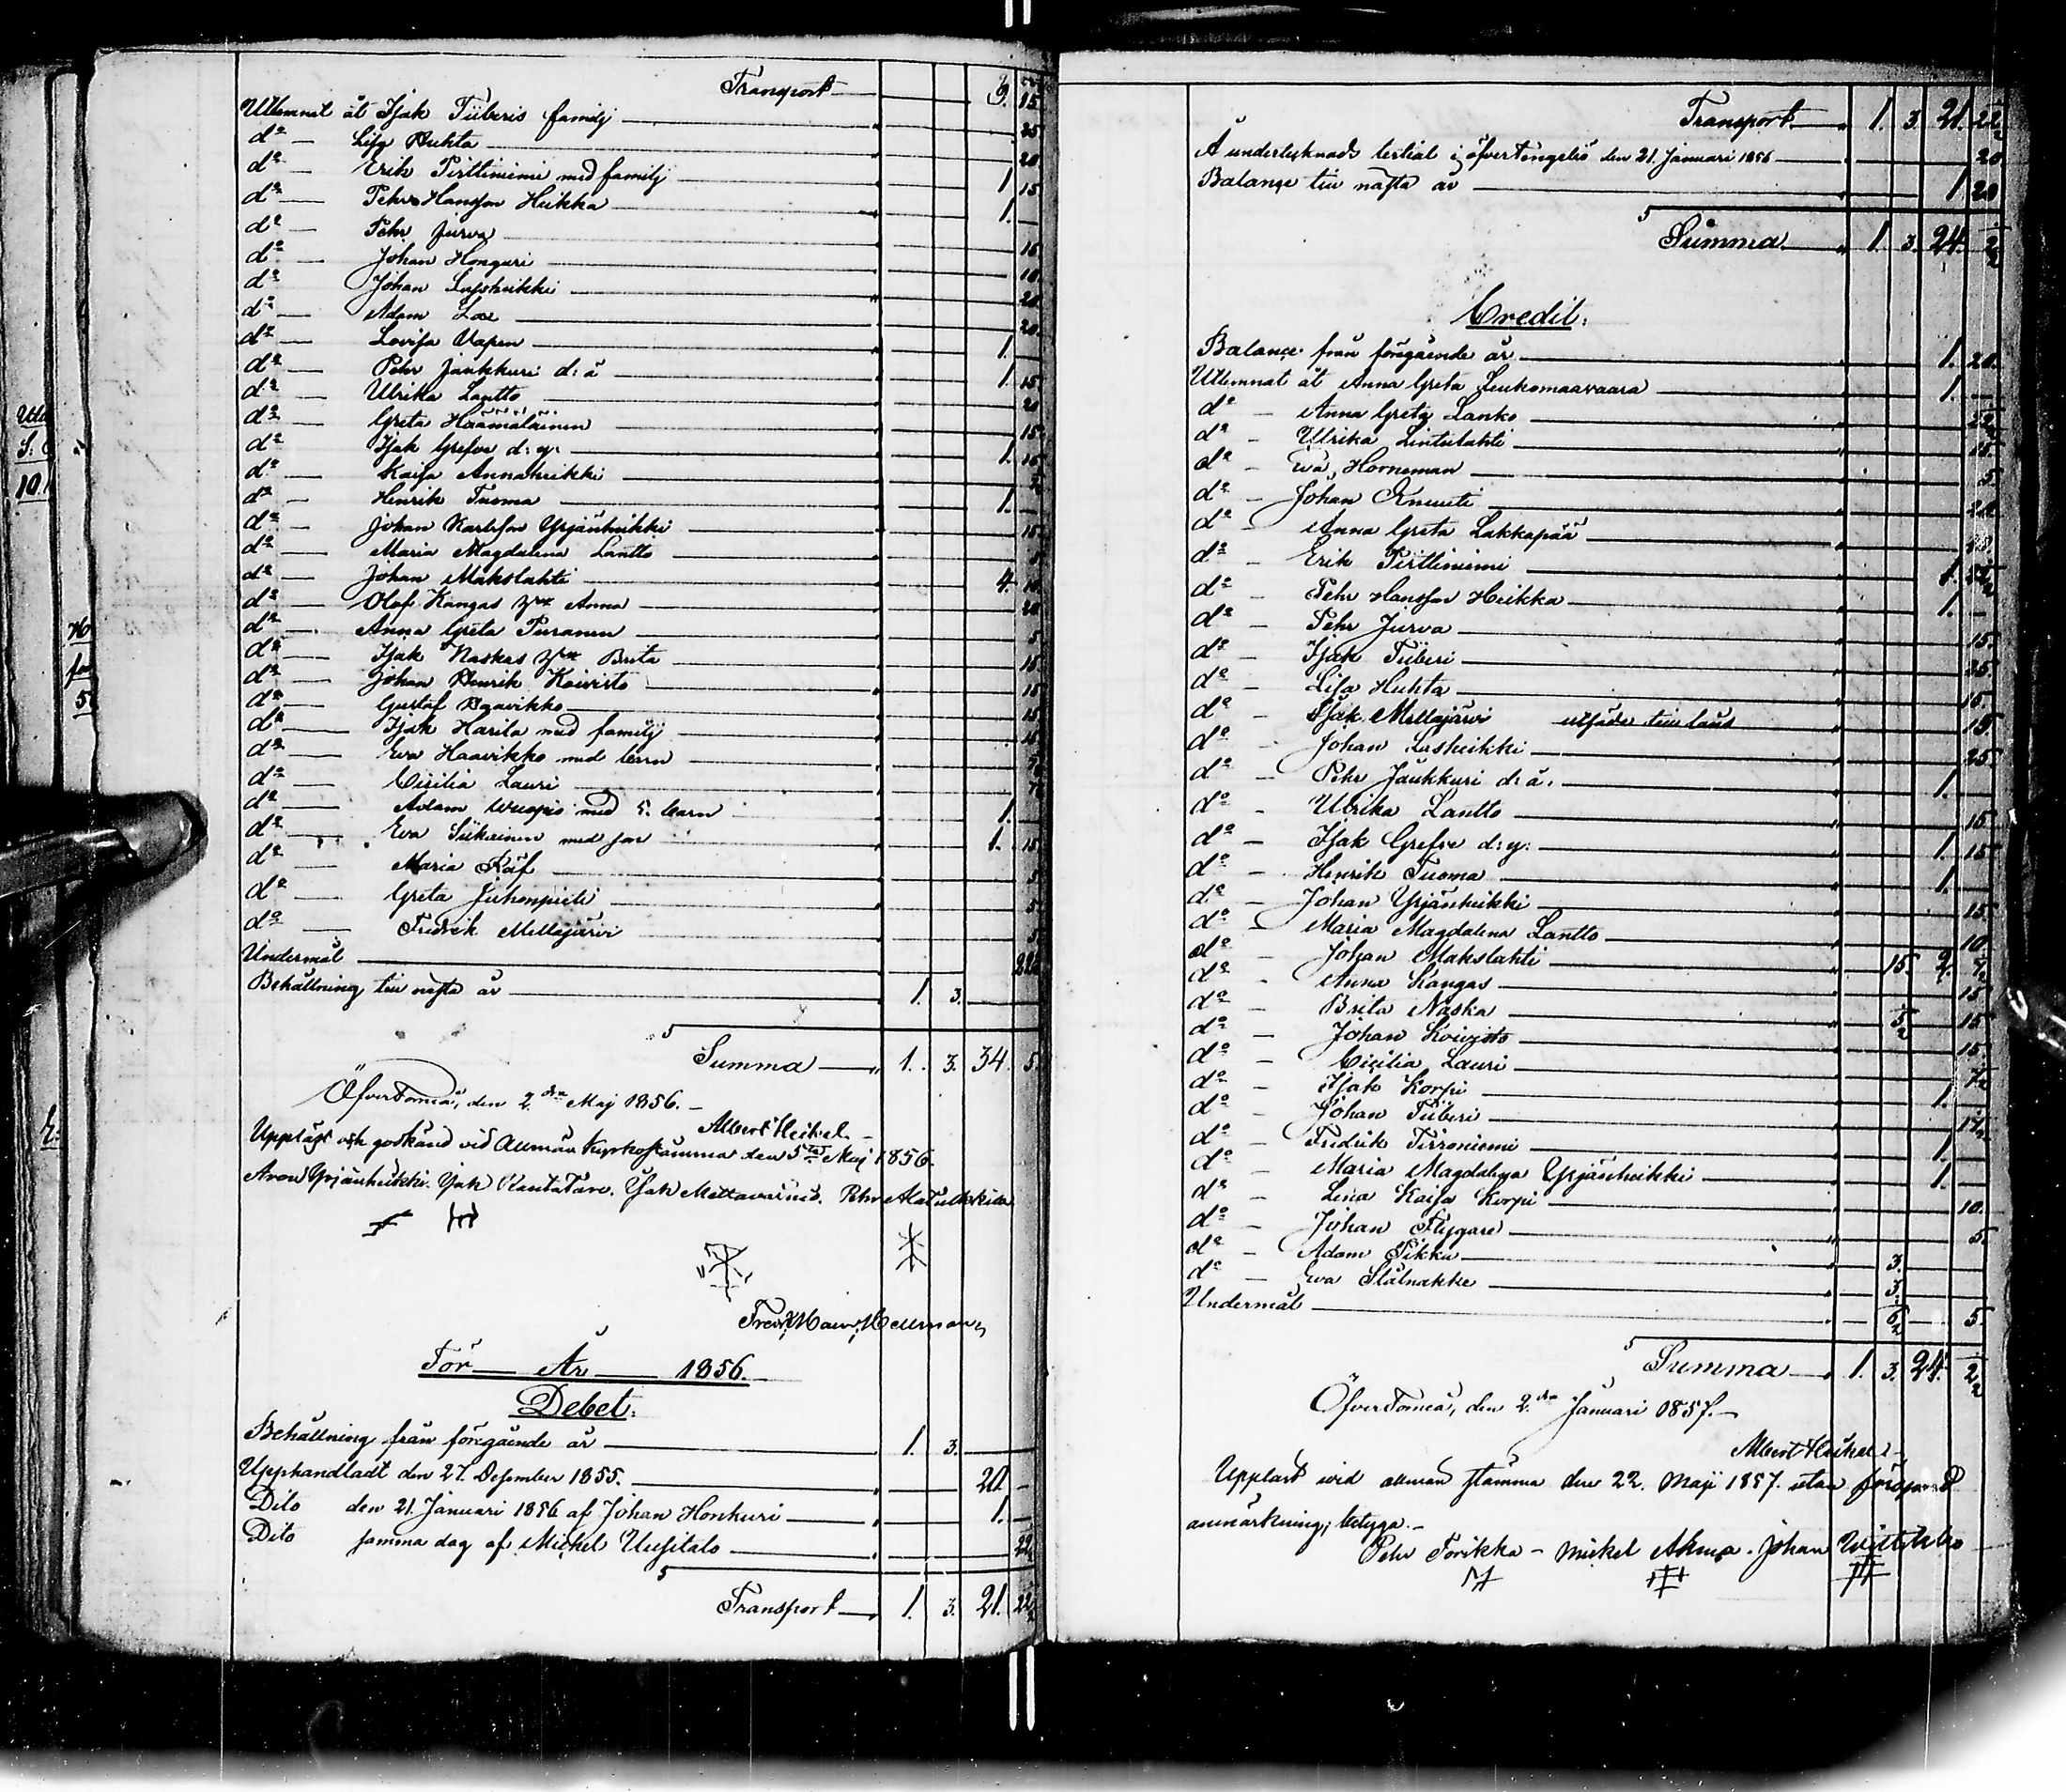 Transport 9. 15
Utlemnat åt Isak Tüberis familj 25
d:o Lisa Huhta 20
d:o Erik Pirttiniemi med familj 1 15
d:o Pehr Hansson Heikka 1.
d:o Pehr Jurva 15
d:o Johan Honguri 10
d:o Johan Lassheikki 20
d:o Adam 20
d:o Lovisa Vapen 1.
d:o Pehr Jaukkuri d:ä 1 15
d:o Ulrika Lantto 20
d:o Greta Häämäläinen 15
d:o Isak Grefve d:y: 1. 15
d:o Kaisa Annaheikki
d:o Henrik Tuoma 1.
d:o Johan Karlsson Yrjänheikki 15
d:o Maria Magdalena Lantto 5
d:o Johan Makslahti 4. 10
d:o Olof Kangas Anna 20
d:o Anna Greta Puranen 5
d:o Isak Naskas Brita 15
d:o Johan Henrik Koivisto 15
d:o Gustaf Haavikko 15
d:o Isak Harila med familj 15
d:o Eva Haavikko med barn
d:o Cicilia Lauri
d:o Adam med 5. barn 1.
d:o Eva Siikainen med son 1. 15
d:o Maria Räf 5
d:o Greta Juhonpieti 5
d:o Fredrik Mellajärvi 5
Undermål
Behållning till nästa år 1. 3.
Summa 1. 3. 34. 5.
ÖfverTorneå, den 2.dra Maj 1856.
Albert Heikel.
Uppläst och godkänd vid Allmän Kyrkostämma den 5te Maj 1856.
Aron Yrjänheikki. Isak Rautatare. Isak Pehr
För År 1856.
Debet:
Behållning från föregående år 1. 3.
Upphandladt den 27. December 1855. 20
Dito den 21. Januari 1856 af Johan Honkuri 1.
Dito samma dag af Michel Uusitalo 22
Transport 1. 3. 21. 22/2
Transport 1. 3. 21. 22/2
Å undertecknads tertial i öfverTorneå den 21. Januari 1856 20
Balançe till nästa år 1 20
Summa 1 3. 24.
Credit:
Balançe från föregående år 1. 20.
Utlemnat åt Anna Greta Leukomaavaara 1.
d:o Anna Greta Lanko
d:o Ulrika Lintulahti 15.
d:o Eva Horneman 5
d:o Johan Knuuti 20
d:o Anna Greta Lakkapää
d:o Erik Pirttiniemi 1.
d:o Pehr Hansson Heikka 1.
d:o Pehr Jurva 15.
d:o Isak Tüberi 25.
d:o Lisa Huhta 15
d:o Isak Mellajärvi utsäde till låns 15.
d:o Johan Lassheikki 25.
d:o Pehr Jaukkuri d:ä. 1.
d:o Ulrika Lantto 15
d:o Isak Grefve d:y: 1. 15
d:o Henrik Tuoma 1.
d:o Johan Yrjänheikki 15.
d:o Maria Magdalena Lantto 10
d:o Johan Makslahti 15. 2.
d:o Anna Kangas 15
d:o Brita Naska 15
d:o Johan Koivisto 15.
d:o Cicilia Lauri
d:o Isak Korpi 1.
d:o Johan Tüberi
d:o Fredrik Tirroniemi 1
d:o Maria Magdalena Yrjänheikki 1.
d:o Lena Kaisa Korpi 10.
d:o Johan Flygare 5.
d:o Adam Pikku 3.
d:o Eva Stålnakke 3.
Undermål 5.
Summa 1. 3. 24.
ÖfverTorneå, den 2.dra Januari 1857.
Albert Heikel.
Uppläst wid allmän stämma den 22. Maji 1857. utan
anmärkning; betyga.
Pehr Torikka – Mickel Johan